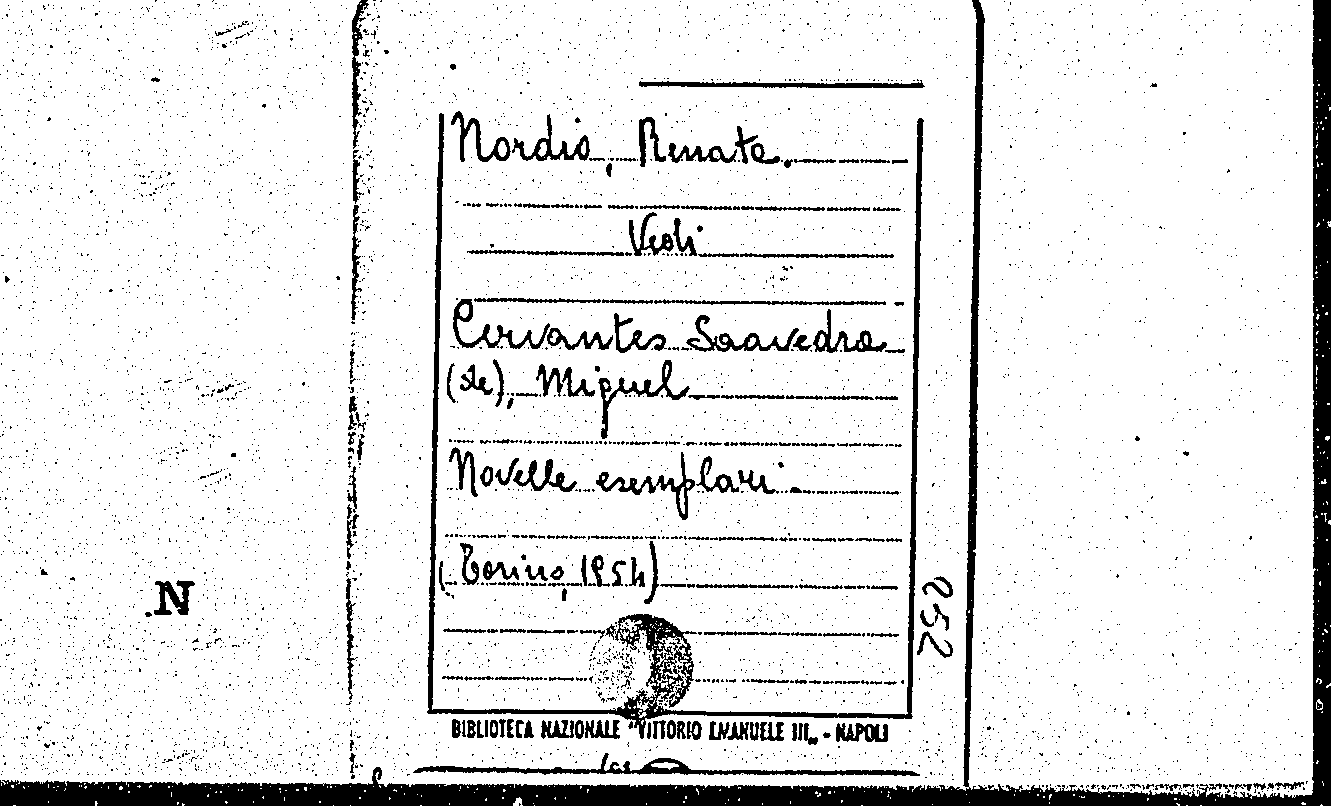 Nordio, Renata.
Vedi
Cervantes Saavedra
(de), Miguel
Novelle esemplari.
(Torino, 1954)
N
252
BIBLIOTECA NAZIONALE "VITTORIO EMANUELE III„ - NAPOLI